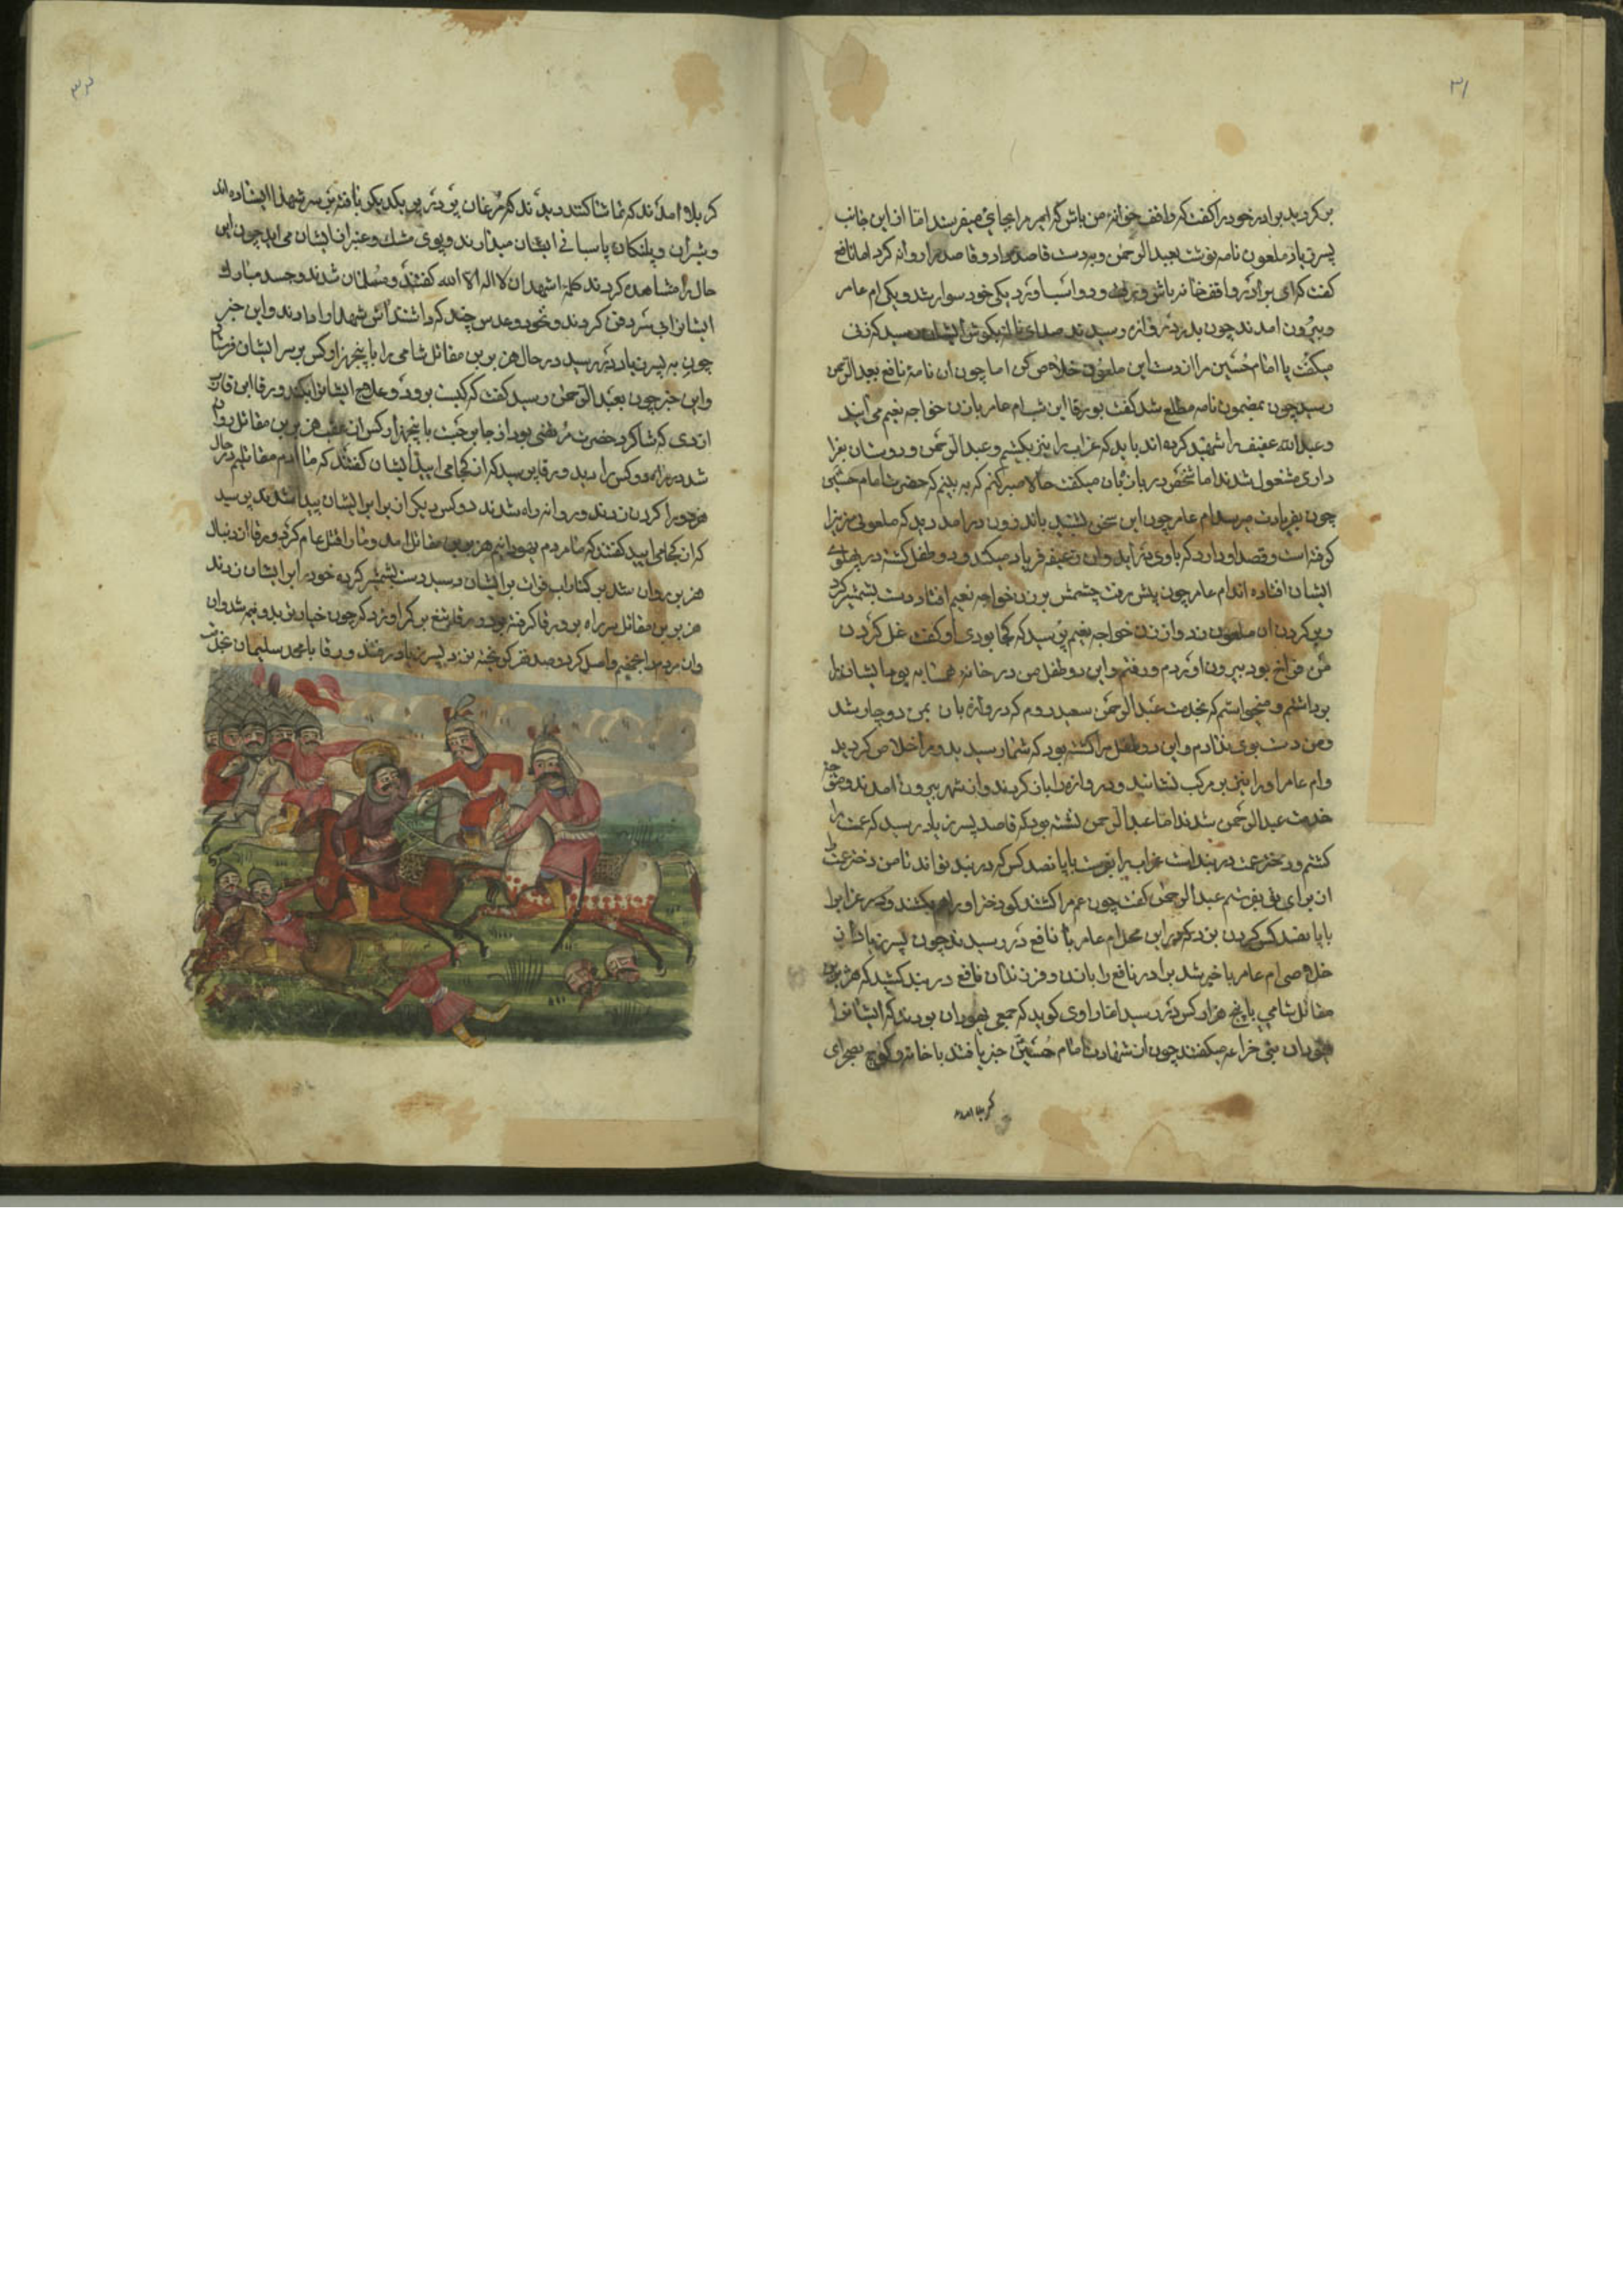 ۳۱
برکردید برادر خود را کفت که واقف خوانهٔ من باش که امیر مرا بجایی میفرستد اما از این جانب
پسر زیاد ملعون نامه نوشت بعبد الرحمن و بدست قاصد داد و قاصد را روانه کرد اما نافع
کفت که ای برادر واقف خانه باش و دو اسب اورد یکی خود سوار شد و یکی ام عامر
و بیرون امدند چون بدر دروازه رسیدند صدای بکوش ایشان رسید که زنی
میکفت یا امام حسین مرا از دست این ملعون خلاص کن اما چون ان نامهٔ نافع بعبد الرحمن
رسید چون بمضمون نامه مطلع شد کفت بورقا این شب ام عامر با زن خواجه نعیم می ایند
و عبد الله عفیف را شهید کرده اند باید که عزاب را نیز بکشیم و عبد الرحمن و دوستان بعزا
داری مشغول شدند اما شخص دربان میکفت حالا صبر کنم که به بینم که حضرت امام حسین
چون بفریادت میرسد ام عامر چون این سخن بشنید باندرون درامد دید که ملعونی زنرا
کرفته است و قصد او دارد که باوی در آید و ان ضعیفه فریاد میکند و دو طفل کشته در پهلوی
ایشان افتاده اند ام عامر چون پیش رفت چشمش بر زن خواجه نعیم افتاد دست بشمشیر کرد
و بر کردن ان ملعون زد و از زن خواجه نعیم پرسید که کجا بودی او کفت غل کردن
من فراخ بود بیرون اوردم و رفتم و این دو طفل من در خانه همسایه بود ایشان را
برداشتم و میخواستم که بخدمت عبد الرحمن سعید روم که دروازه بان بمن دوچار شد
و من دست بوی ندادم و این دو طفل مرا کشته بود که شما رسیدید و مرا خلاص کردید
و ام عامر اورا نیز بر مرکب نشانید و دروازه را باز کردند و از شهر بیرون امدند و متوجه
خدمت عبد الرحمن شدند اما عبد الرحمن نشسته بود که قاصد پسر زیاد رسید که عمت را
کشتم و دختر عمت در بند است عزاب را بفرست با پانصد کس که در بند تواند تا من دختر عمت را
از برای تو بفرستم عبد الرحمن کفت چون عم مرا کشتند کو دختر او را هم بکشند و در عزاب را
با پانصد کس کردن بزد که در این محل ام عامر با نافع در رسیدند چون پسر زیاد از
خلاصی ام عامر با خبر شد برادر نافع را با زن و فرزندان نافع در بند کشید که هزبر بن
مقاتل شامی با پنج هزار کس در رسید اما راوی کوید که جمعی یهودان بودند که ایشانرا
یهودان بنی خزاعه میکفتند چون از شهادت امام حسین خبر یافتند با خانه و کوچ بصحرای
کربلا امد
۳۲
کربلا امدند که تماشا کنند دیدند که مرغان پر در پر یکدیکر بافته بر سر شهدا ایستاده اند
و شیران و پلنکان پاسبانی ایشان میدارند و بوی مشک و عنبر از ایشان می اید چون این
حال را مشاهده کردند کلمهٔ اشهد ان لا اله الا الله کفتند و مسلمان شدند و جسد مبارک
ایشانرا بی سر دفن کردند و نخود و عدس چند که داشتند اش شهدا را دادند و این خبر
چون به پسر زیاد در رسید در حال هزبر بن مقاتل شامی را با پنجهزار کس بر سر ایشان فرستاد
و این خبر چون بعبد الرحمن رسید کفت که کیست برود و علاج ایشانرا بکند ورقا ابن قارب
ازدی که شاکرد حضرت مرتضی بود از جا برجست با پنجهزار کس از عقب هزبر بن مقاتل روان
شد در راه دو کس را دید ورقا پرسید که از کجا می ایید ایشان کفتند که ما ادم مقاتلیم در حال
هردو را کردن زدند و روانه راه شدند دو کس دیکر از برابر ایشان پیدا شدند پرسید
که از کجا می ایید کفتند که ما مردم یهودانیم هزبر بن مقاتل امد و ما را قتل عام کرد ورقا از دنبال
هزبر روان شد بر کنار اب فرات بر ایشان رسید دست بشمشیر کرده خود را بر ایشان زدند
هزبر بن مقاتل سر راه بر ورقا کرفته بود ورقا تیغ بر کمر او زد که چون خیار تر بدو نیم شد و ان
و ان مردم را بجهنم واصل کرد و صد نفر کریخته نزد پسر زیاد رفتند ورقا با محمد سلیمان بخدمت